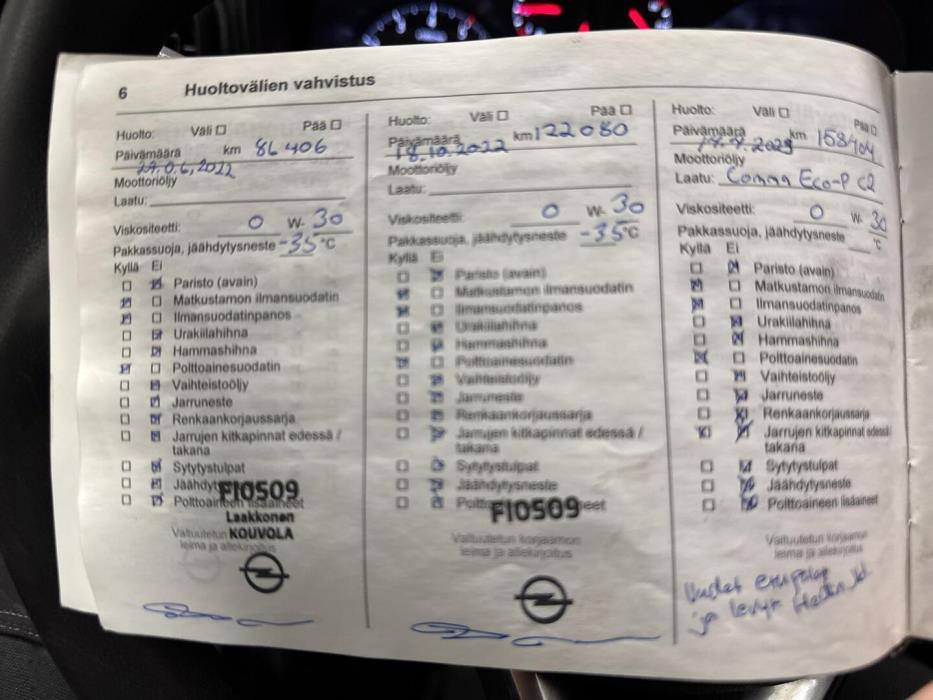 6 Huoltovälien vahvistus
Huolto: Väli Pää
Päivämäärä km 86 406
Moottoriöljy
Laatu:
Viskositeetti: 0 W- 30
Pakkassuoja, jäähdytysneste -35 °C
Kyllä Ei
Paristo (avain)
Matkustamon ilmansuodatin
Ilmansuodatinpanos
Urakiilahihna
Hammashihna
Polttoainesuodatin
Vaihteistoöljy
Jarruneste
Renkaankorjaussarja
Jarrujen kitkapinnat edessä /
takana
Sytytystulpat
FI0509
Polttoaineen lisäaineet
Laakkonen
Valtuutetun KOUVOLA
leima ja allekirjoitus
Huolto: Väli Pää
Päivämäärä km 122 080
18.10.2022
Moottoriöljy
Laatu:
Viskositeetti: 0 W- 30
Pakkassuoja, jäähdytysneste -35 °C
Kyllä Ei
Paristo (avain)
Matkustamon ilmansuodatin
Ilmansuodatinpanos
Urakiilahihna
Hammashihna
Polttoainesuodatin
Vaihteistoöljy
Jarruneste
Renkaankorjaussarja
Jarrujen kitkapinnat edessä /
takana
Sytytystulpat
Jäähdytysneste
FI0509
Valtuutetun korjaamon
leima ja allekirjoitus
Huolto: Väli Pää
Päivämäärä km
Moottoriöljy
Laatu: Comma Eco-P C2
Viskositeetti: 0 W- 30
Pakkassuoja, jäähdytysneste °C
Kyllä Ei
Paristo (avain)
Matkustamon ilmansuodatin
Ilmansuodatinpanos
Urakiilahihna
Hammashihna
Polttoainesuodatin
Vaihteistoöljy
Jarruneste
Renkaankorjaussarja
Jarrujen kitkapinnat edessä
takana
Sytytystulpat
Jäähdytysneste
Polttoaineen lisäaineet
Valtuutetun korjaamon
leima ja allekirjoitus
Uudet
ja levyt